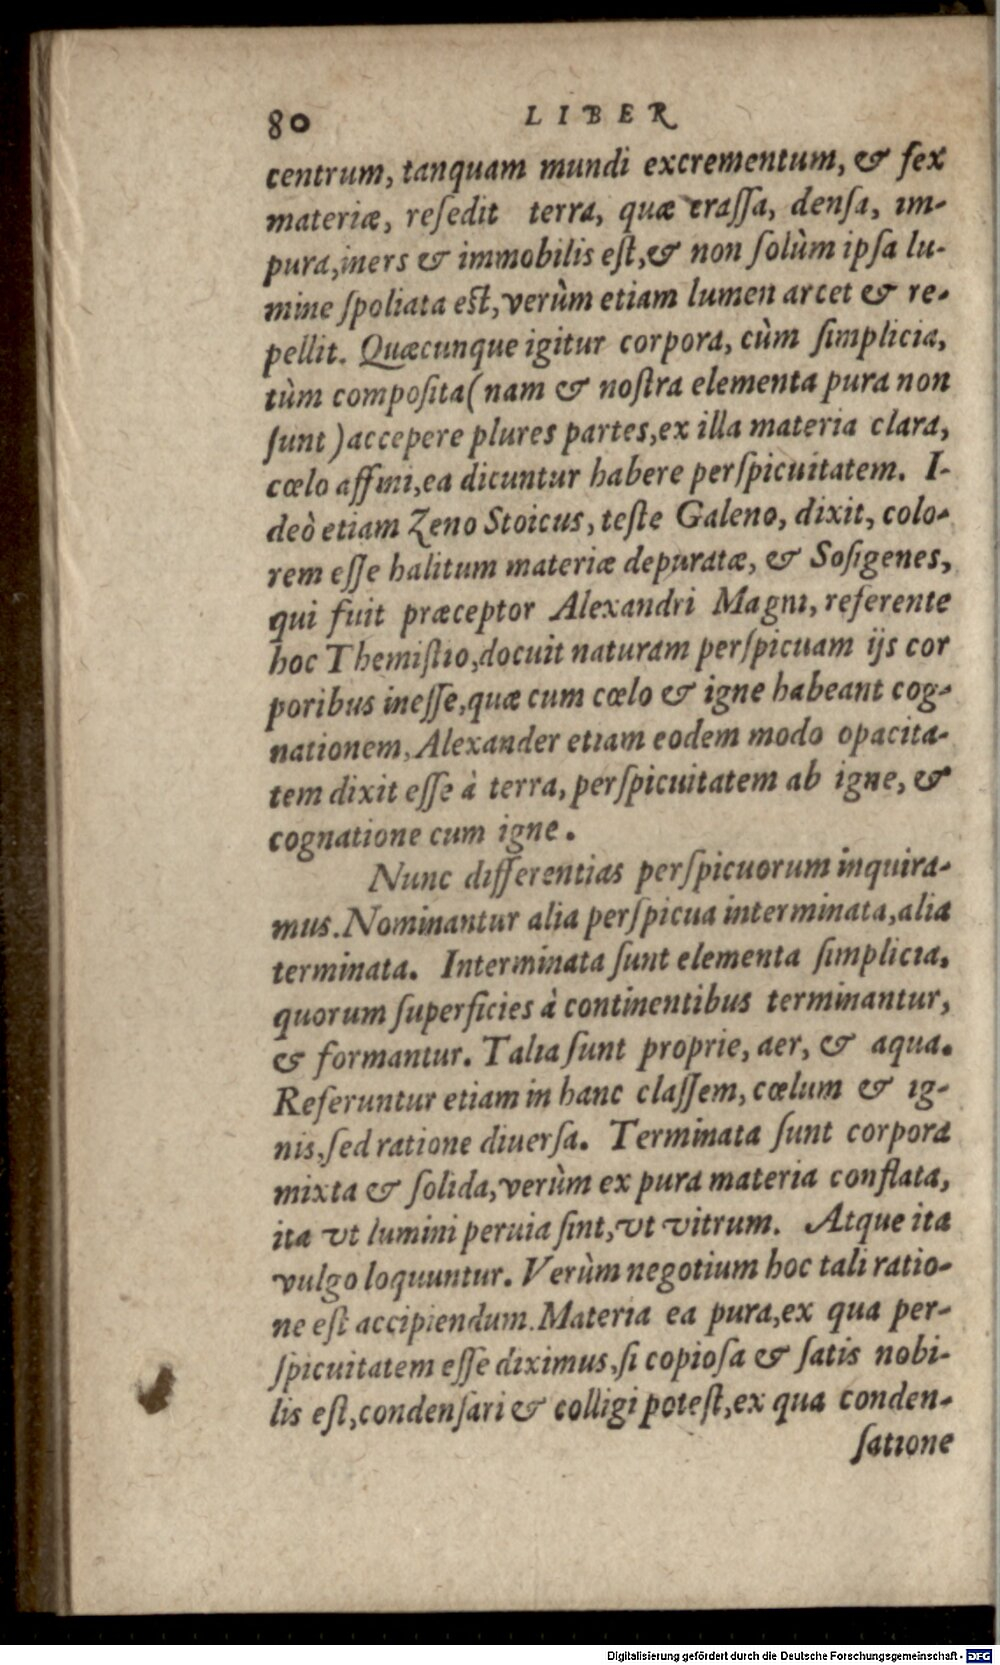 80 LIBER
centrum, tanquam mundi excrementum, & fex
materiæ, reſedit terra, quæ craſſa, denſa, im-
pura, iners & immobilis eſt, & non ſolùm ipſa lu-
mine ſpoliata eſt, verùm etiam lumen arcet & re-
pellit. Quæcunque igitur corpora, cùm ſimplicia,
tùm compoſita (nam & noſtra elementa pura non
ſunt) accepere plures partes, ex illa materia clara,
cœlo affini, ea dicuntur habere perſpicuitatem. I-
deò etiam Zeno Stoicus, teſte Galeno, dixit, colo-
rem eſſe halitum materiæ depuratæ, & Soſigenes,
qui fuit præceptor Alexandri Magni, referente
hoc Themiſtio, docuit naturam perſpicuam ijs cor
poribus ineſſe, quæ cum cœlo & igne habeant cog-
nationem, Alexander etiam eodem modo opacita-
tem dixit eſſe à terra, perſpicuitatem ab igne, &
cognatione cum igne.
Nunc differentias perſpicuorum inquira-
mus. Nominantur alia perſpicua interminata, alia
terminata. Interminata ſunt elementa ſimplicia,
quorum ſuperficies à continentibus terminantur,
& formantur. Talia ſunt proprie, aer, & aqua.
Referuntur etiam in hanc claſſem, cœlum & ig-
nis, ſed ratione diuerſa. Terminata ſunt corpora
mixta & ſolida, verùm ex pura materia conflata,
ita vt lumini peruia ſint, vt vitrum. Atque ita
vulgo loquuntur. Verùm negotium hoc tali ratio-
ne eſt accipiendum. Materia ea pura, ex qua per-
ſpicuitatem eſſe diximus, ſi copioſa & ſatis nobi-
lis eſt, condenſari & colligi poteſt, ex qua conden-
ſatione
Digitalisierung gefördert durch die Deutsche Forschungsgemeinschaft - DFG